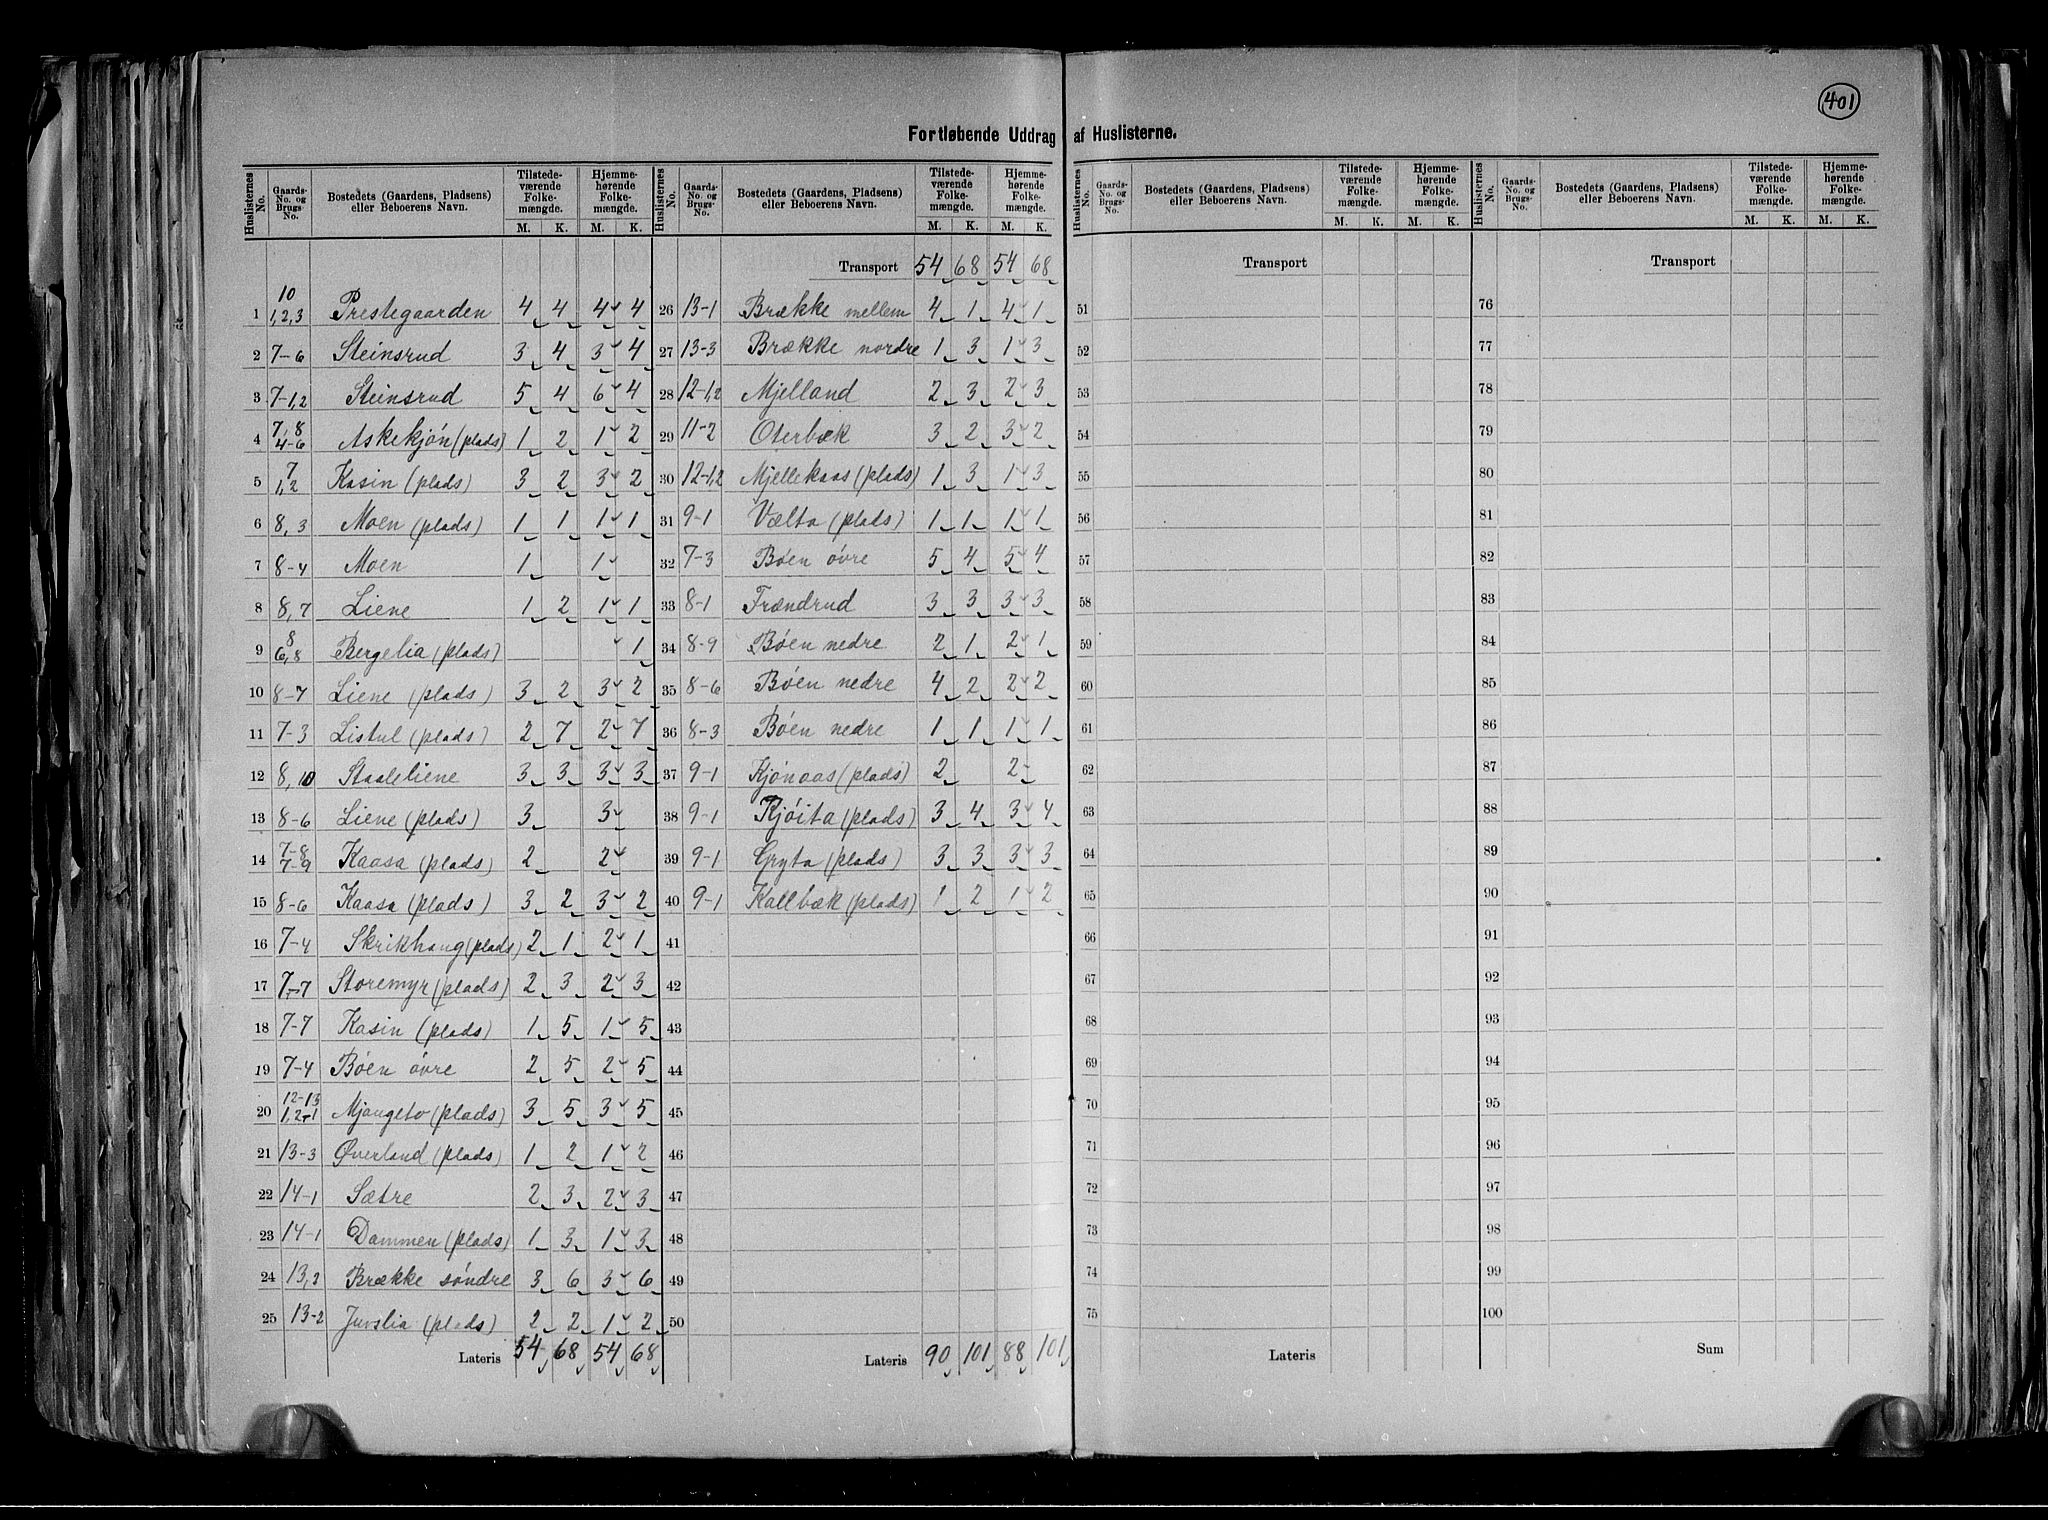 401
Fortløbende Uddrag af Huslisterne.
Huslisternes No. | Gaards-No. og Brugs-No. | Bostedets (Gaardens, Pladsens) eller Beboerens Navn. | Tilstedeværende Folkemængde. M. K. | Hjemmehørende Folkemængde. M. K.
1 | 10 1,2,3 | Prestegaarden | 4 | 4 | 4 | 4
2 | 7-6 | Steinsrud | 3 | 4 | 3 | 4
3 | 7-1,2 | Steinsrud | 5 | 4 | 6 | 4
4 | 7,8 4-6 | Askekjøn (plads) | 1 | 2 | 1 | 2
5 | 7 1,2 | Kasin (plads) | 3 | 2 | 3 | 2
6 | 8,3 | Moen (plads) | 1 | 1 | 1 | 1
7 | 8-4 | Moen | 1 | | 1 |
8 | 8,7 | Liene | 1 | 2 | 1 | 1
9 | 8 6,8 | Bergelia (plads) | | | | 1
10 | 8-7 | Liene (plads) | 3 | 2 | 3 | 2
11 | 7-3 | Listul (plads) | 2 | 7 | 2 | 7
12 | 8,10 | Staaleliene | 3 | 3 | 3 | 3
13 | 8-6 | Liene (plads) | 3 | | 3 |
14 | 7-8 7-9 | Kaasa (plads) | 2 | | 2 |
15 | 8-6 | Kaasa (plads) | 3 | 2 | 3 | 2
16 | 7-4 | Skrikhaug (plads) | 2 | 1 | 2 | 1
17 | 7-7 | Storemyr (plads) | 2 | 3 | 2 | 3
18 | 7-7 | Kasin (plads) | 1 | 5 | 1 | 5
19 | 7-4 | Bøen øvre | 2 | 5 | 2 | 5
20 | 12-13 1,2-1 | Mjangeto (plads) | 3 | 5 | 3 | 5
21 | 13-3 | Øverland (plads) | 1 | 2 | 1 | 2
22 | 14-1 | Sætre | 2 | 3 | 2 | 3
23 | 14-1 | Dammen (plads) | 1 | 3 | 1 | 3
24 | 13,2 | Brække søndre | 3 | 6 | 3 | 6
25 | 13-2 | Juvslia (plads) | 2 | 2 | 1 | 2
Lateris | 54 | 68 | 54 | 68
Huslisternes No. | Gaards-No. og Brugs-No. | Bostedets (Gaardens, Pladsens) eller Beboerens Navn. | Tilstedeværende Folkemængde. M. K. | Hjemmehørende Folkemængde. M. K.
Transport | 54 | 68 | 54 | 68
26 | 13-1 | Brække mellem | 4 | 1 | 4 | 1
27 | 13-3 | Brække nordre | 1 | 3 | 1 | 3
28 | 12-1,2 | Mjelland | 2 | 3 | 2 | 3
29 | 11-2 | Oterbæk | 3 | 2 | 3 | 2
30 | 12-1,2 | Mjellekaas (plads) | 1 | 3 | 1 | 3
31 | 9-1 | Vælta (plads) | 1 | 1 | 1 | 1
32 | 7-3 | Bøen øvre | 5 | 4 | 5 | 4
33 | 8-1 | Frændrud | 3 | 3 | 3 | 3
34 | 8-9 | Bøen nedre | 2 | 1 | 2 | 1
35 | 8-6 | Bøen nedre | 4 | 2 | 2 | 2
36 | 8-3 | Bøen nedre | 1 | 1 | 1 | 1
37 | 9-1 | Kjønaas (plads) | 2 | | 2 |
38 | 9-1 | Kjøita (plads) | 3 | 4 | 3 | 4
39 | 9-1 | Gryta (plads) | 3 | 3 | 3 | 3
40 | 9-1 | Kallbæk (plads) | 1 | 2 | 1 | 2
41
42
43
44
45
46
47
48
49
50
Lateris | 90 | 101 | 88 | 101
Huslisternes No. | Gaards-No. og Brugs-No. | Bostedets (Gaardens, Pladsens) eller Beboerens Navn. | Tilstedeværende Folkemængde. M. K. | Hjemmehørende Folkemængde. M. K.
Transport
51
52
53
54
55
56
57
58
59
60
61
62
63
64
65
66
67
68
69
70
71
72
73
74
75
Lateris
Huslisternes No. | Gaards-No. og Brugs-No. | Bostedets (Gaardens, Pladsens) eller Beboerens Navn. | Tilstedeværende Folkemængde. M. K. | Hjemmehørende Folkemængde. M. K.
Transport
76
77
78
79
80
81
82
83
84
85
86
87
88
89
90
91
92
93
94
95
96
97
98
99
100
Sum